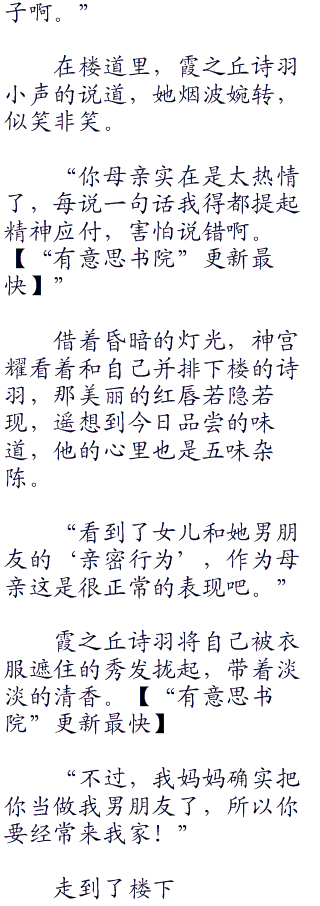 子啊。”
在楼道里，霞之丘诗羽
小声的说道，她烟波婉转，
似笑非笑。
“你母亲实在是太热情
了，每说一句话我得都提起
精神应付，害怕说错啊。
【“有意思书院”更新最
快】”
借着昏暗的灯光，神宫
耀看着和自己并排下楼的诗
羽，那美丽的红唇若隐若
现，遥想到今日品尝的味
道，他的心里也是五味杂
陈。
“看到了女儿和她男朋
友的‘亲密行为’，作为母
亲这是很正常的表现吧。”
霞之丘诗羽将自己被衣
服遮住的秀发拢起，带着淡
淡的清香。【“有意思书
院”更新最快】
“不过，我妈妈确实把
你当做我男朋友了，所以你
要经常来我家！”
走到了楼下